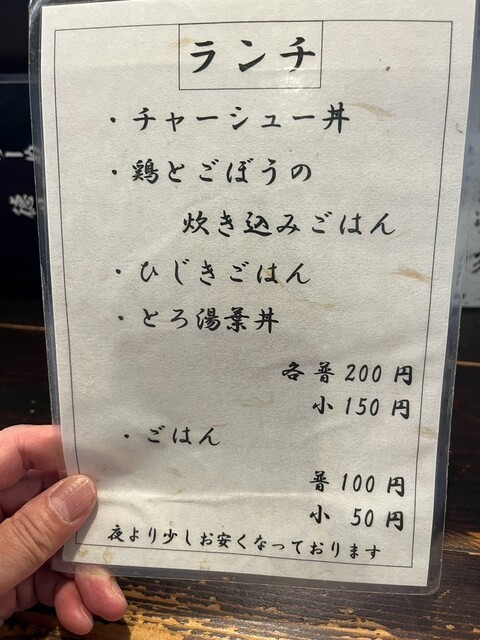 ランチ
・チャーシュー丼
・鶏とごぼうの
炊き込みごはん
・ひじきごはん
・とろ湯葉丼
各普200円
小150円
・ごはん
普100円
小 50円
夜より少しお安くなっております